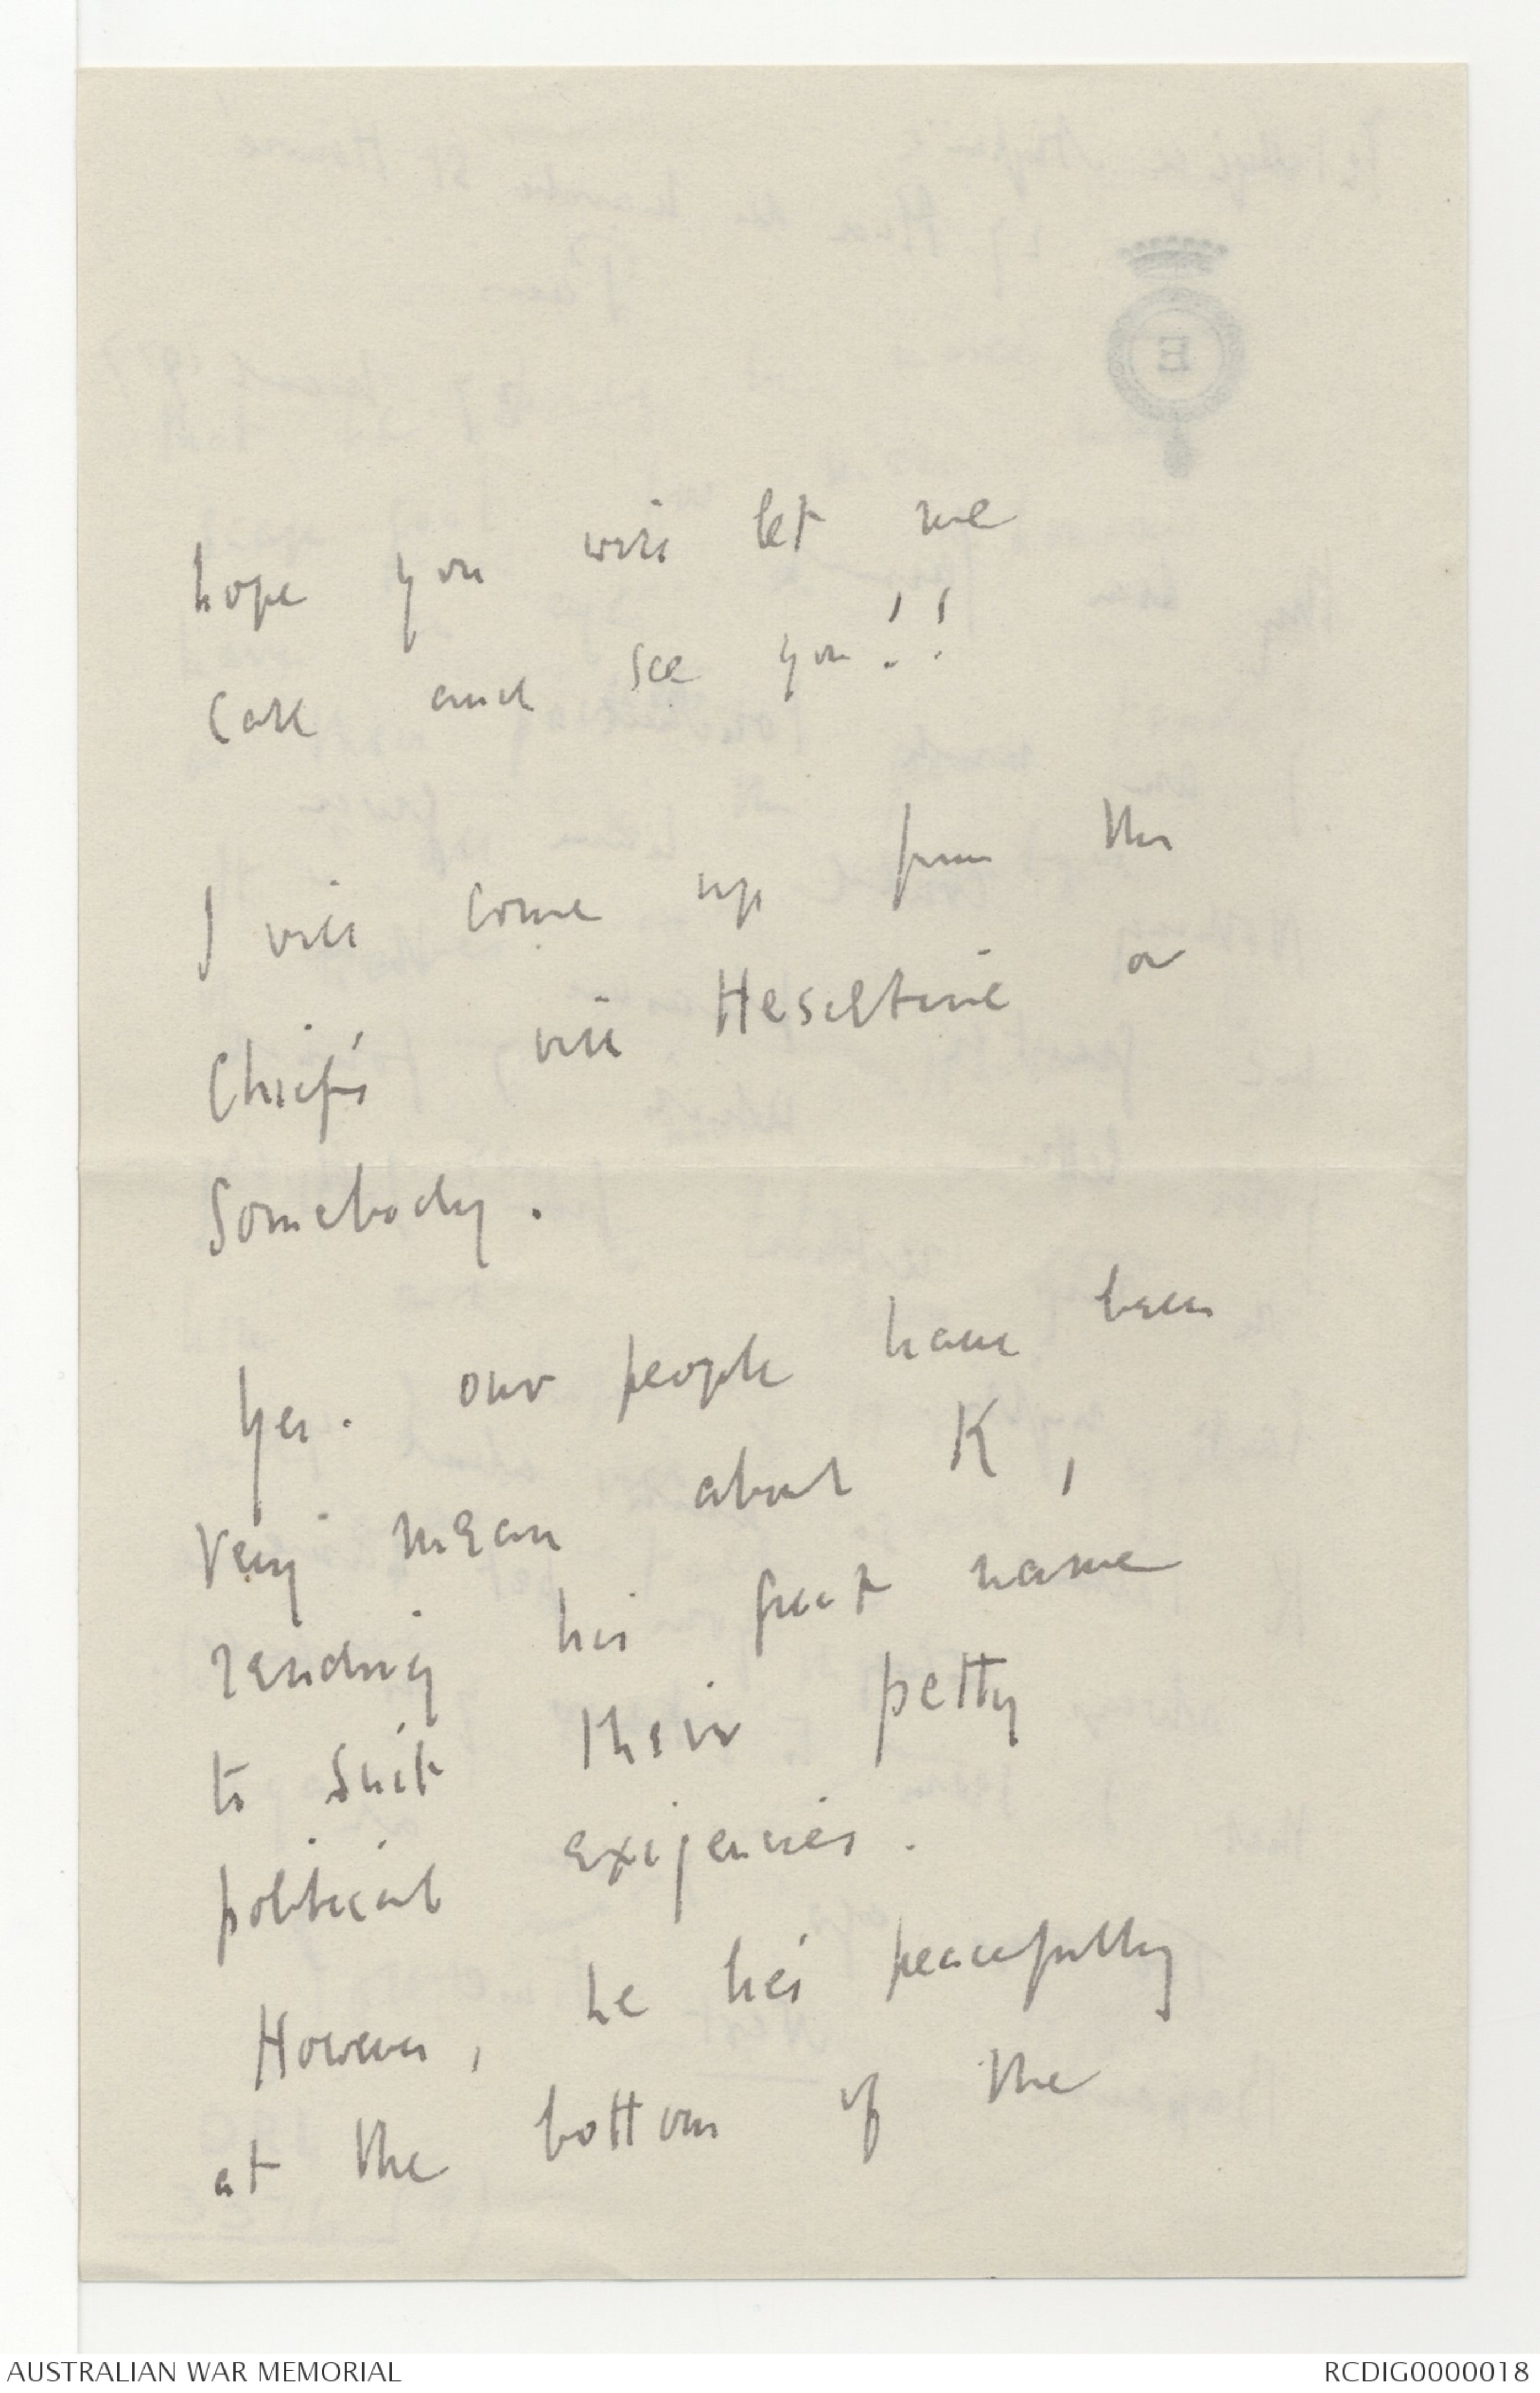 hope you will let me
call and see you!!
I will come up from the
Chief's with Heseltine or
Somebody.
Yes. our people have been
very mean about K,
rending his great name
to suit their petty
political exigencies.
However, he lies peacefully
at the bottom of the
E
AUSTRALIAN WAR MEMORIAL
RCDIG0000018